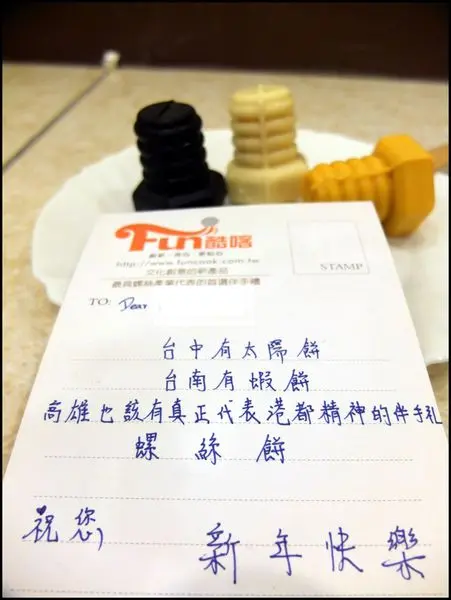 Fun酷喀
http://www.funcook.com.tw
文化創意的新產品
最具螺絲產業代表的首選伴手禮
STAMP
TO: Dear
台中有太陽餅
台南有蝦餅
高雄也該有真正代表港都精神的伴手礼
螺絲餅
祝您,
新年快樂